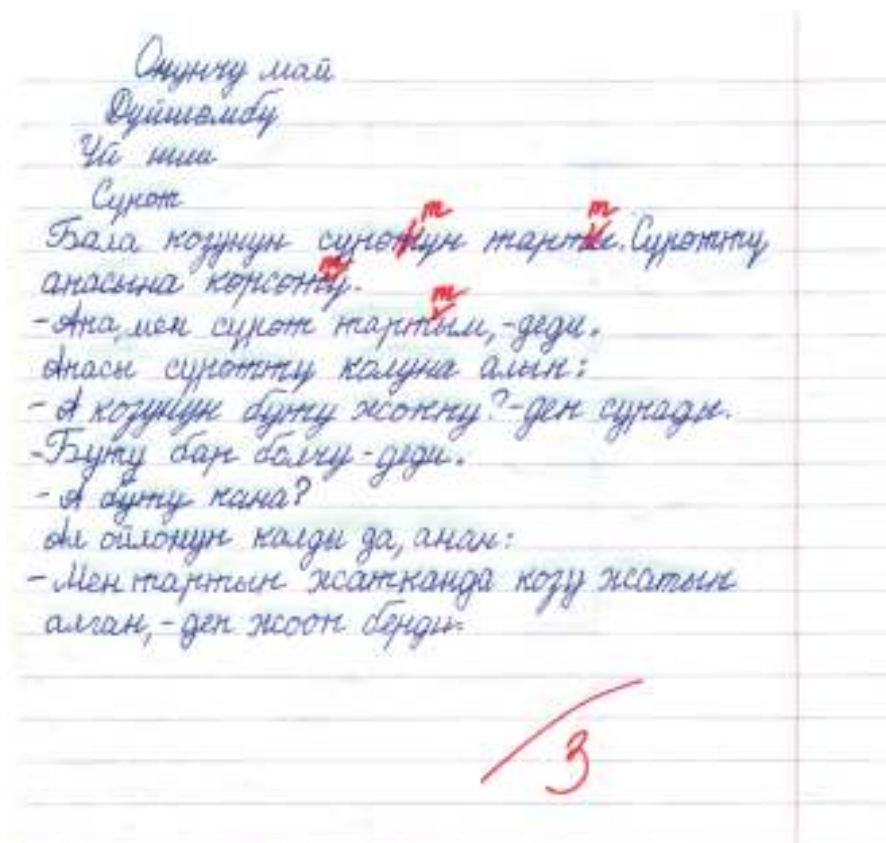 Онунчу май
Дүйшөмбү
Үй иши
Сүрөт
т т
Бала козунун сүрөтүн тарты. Сүрөттү
т
апасына көрсөтү.
т
-Апа, мен сүрөт тартым,-деди.
Апасы сүрөттү колуна алып:
- А козунун буту жокпу?-деп сурады.
-Буту бар болчу-деди.
- А буту кана?
Ал ойлонуп калды да, анан:
- Мен тартып жатканда козу жатып
алган,-деп жооп берди.
3